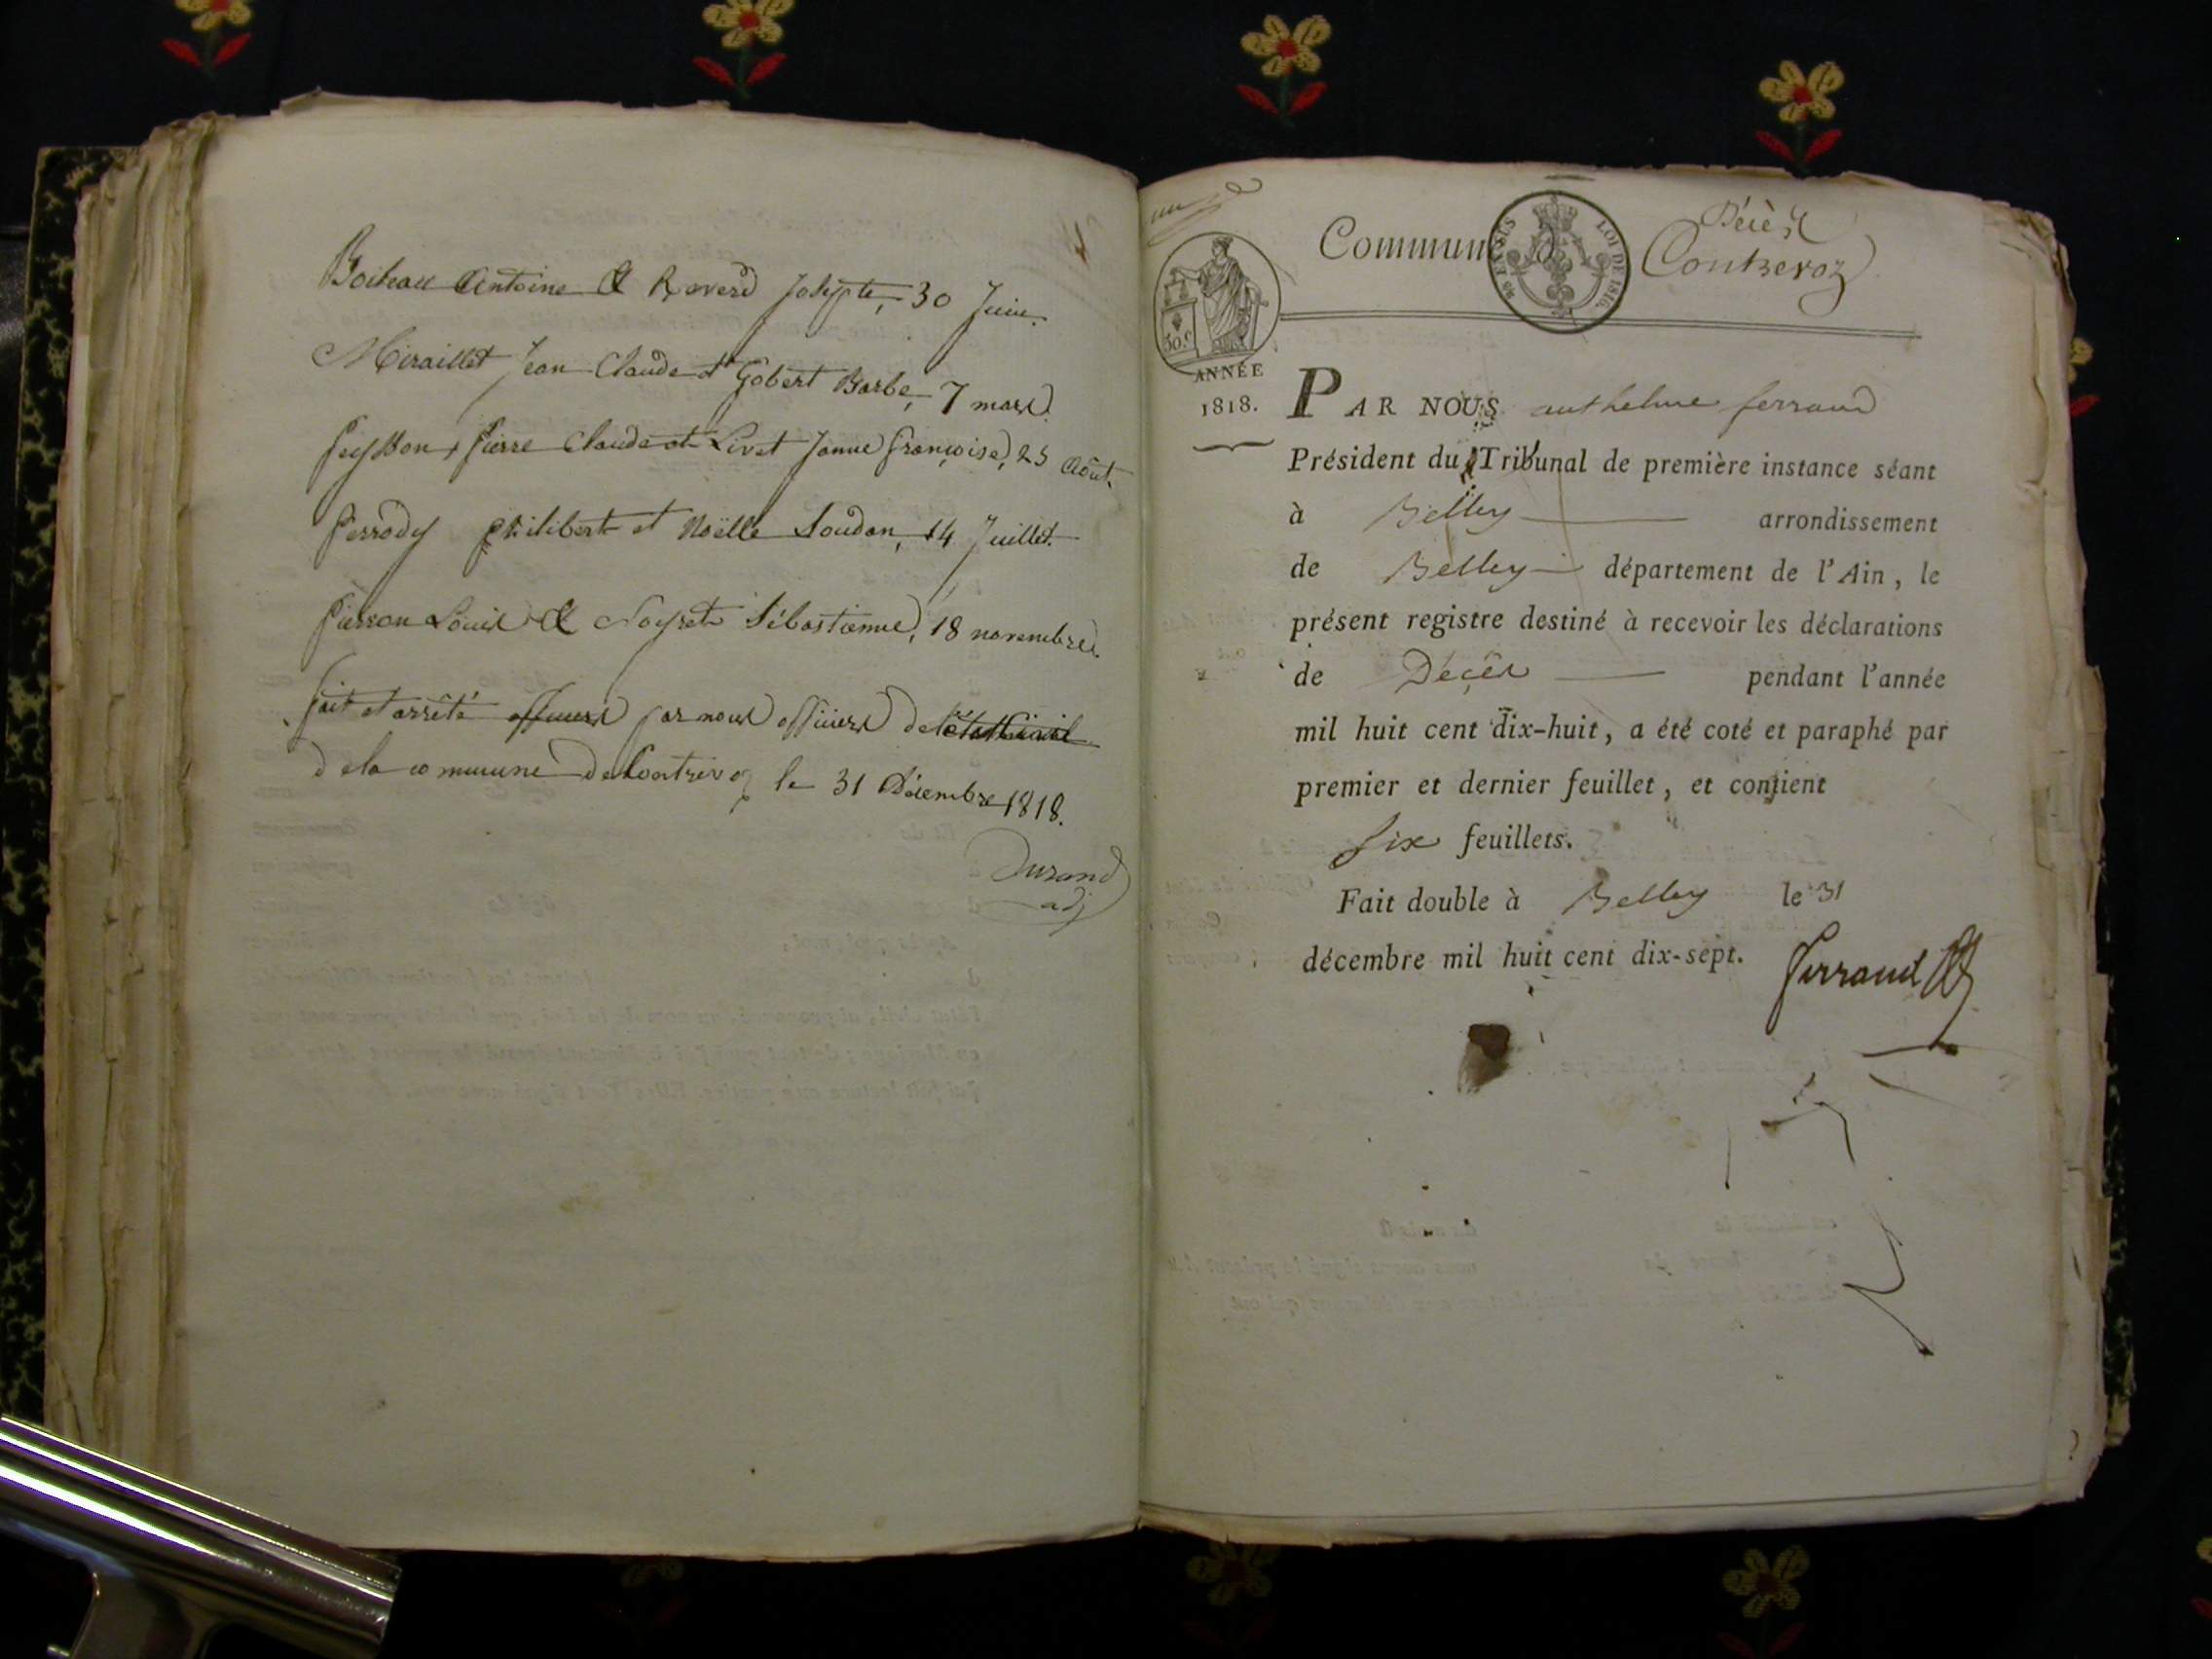 Boiteau Antoine & Reverd Josephte, 30 Juin.
Miraillet Jean Claude et Gobert Barbe, 7 mars.
Peysson Pierre Claude et Livet Janne Françoise, 25 Août.
Perrody Philibert et Noëlle Soudan, 14 Juillet.
Pierron Louis & Noyret Sébastienne, 18 novembre.
fait et arrêté par nous officiers de l'état civil
de la commune de Contrevoz le 31 Décembre 1818.
Durand
adj
Décès
Commune Contrevoz
LOI DE 1816.
30.c
ANNÉE
1818.
PAR NOUS anthelme ferrand
Président du Tribunal de première instance séant
à Belley arrondissement
de Belley département de l'Ain, le
présent registre destiné à recevoir les déclarations
de Décès pendant l'année
mil huit cent dix-huit, a été coté et paraphé par
premier et dernier feuillet, et contient
six feuillets.
Fait double à Belley le 31
décembre mil huit cent dix-sept.
Ferrand